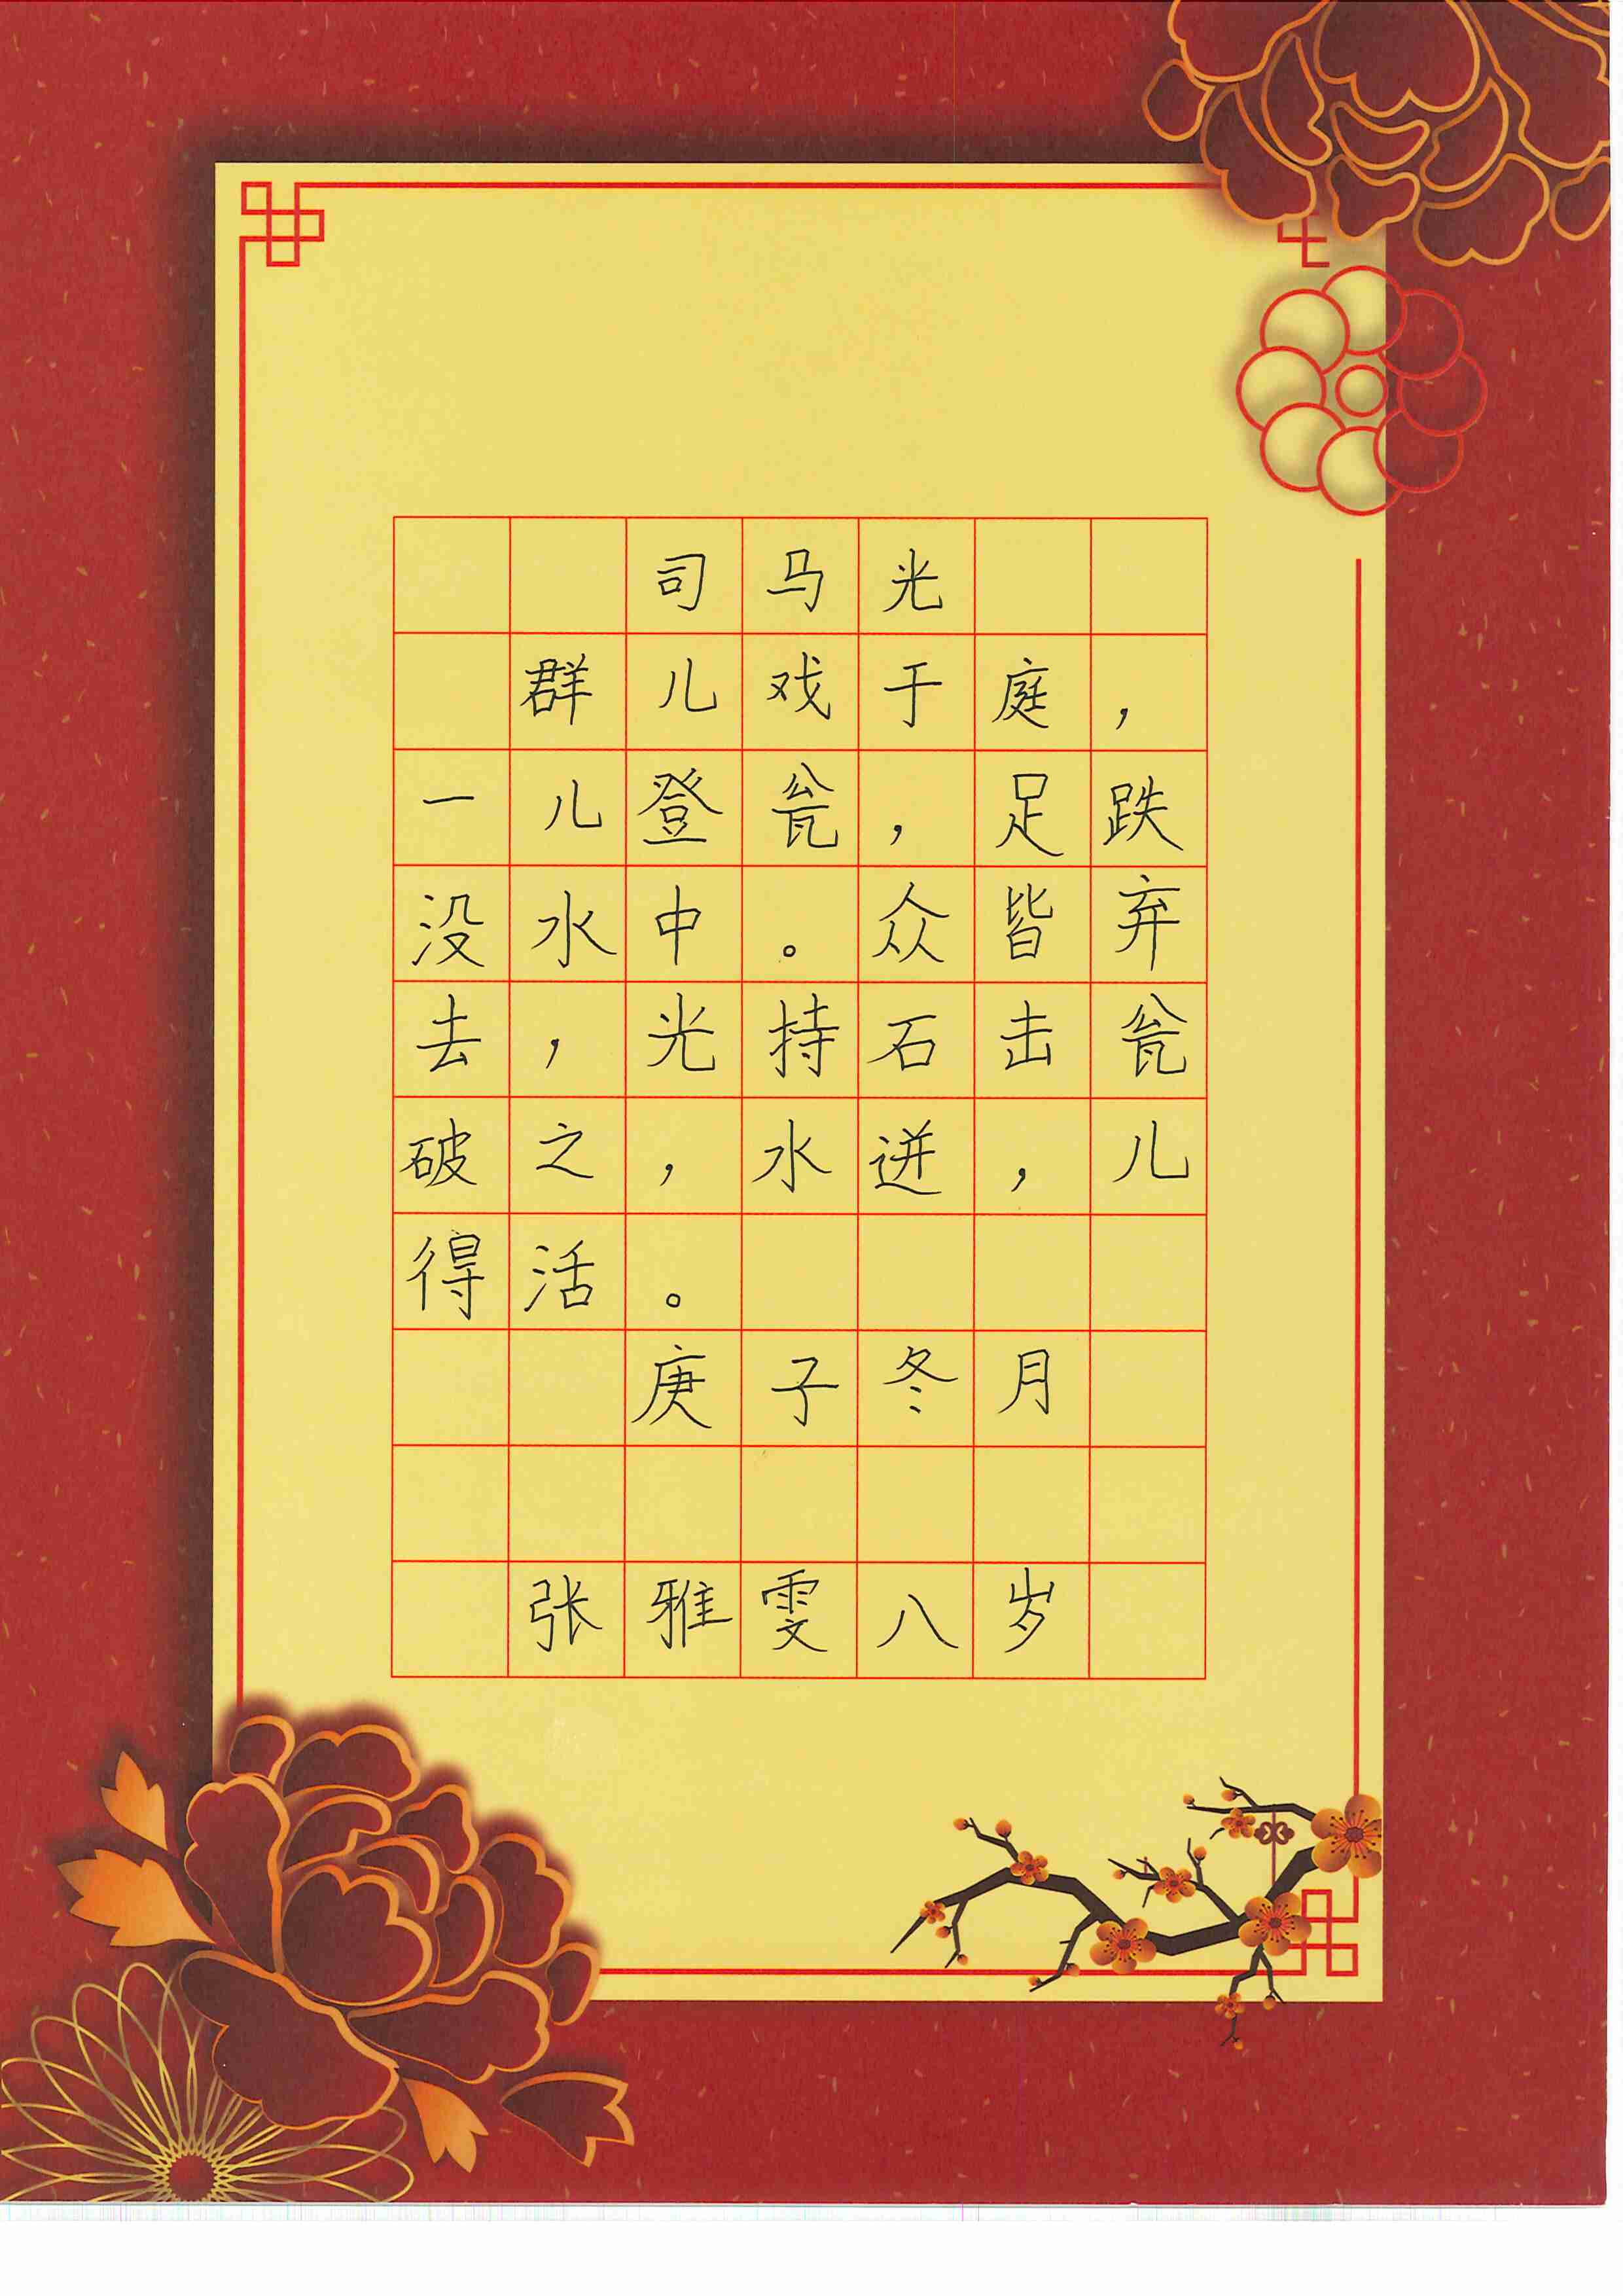 司马光
群儿戏于庭，
一儿登瓮，足跌
没水中。众皆弃
去，光持石击瓮
破之，水迸，儿
得活。
庚子冬月
张雅雯八岁